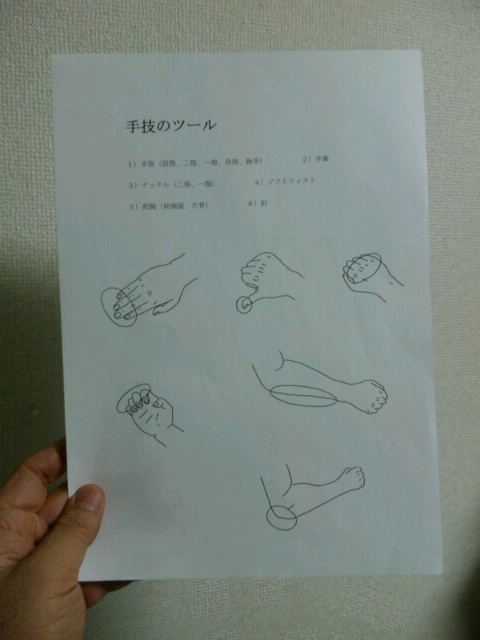 手技のツール
1）手指（四指、二指、一指、母指、鈎手） 2）手掌
3）ナックル（二指、一指） 4）ソフトフィスト
5）前腕（前側面、尺骨） 6）肘